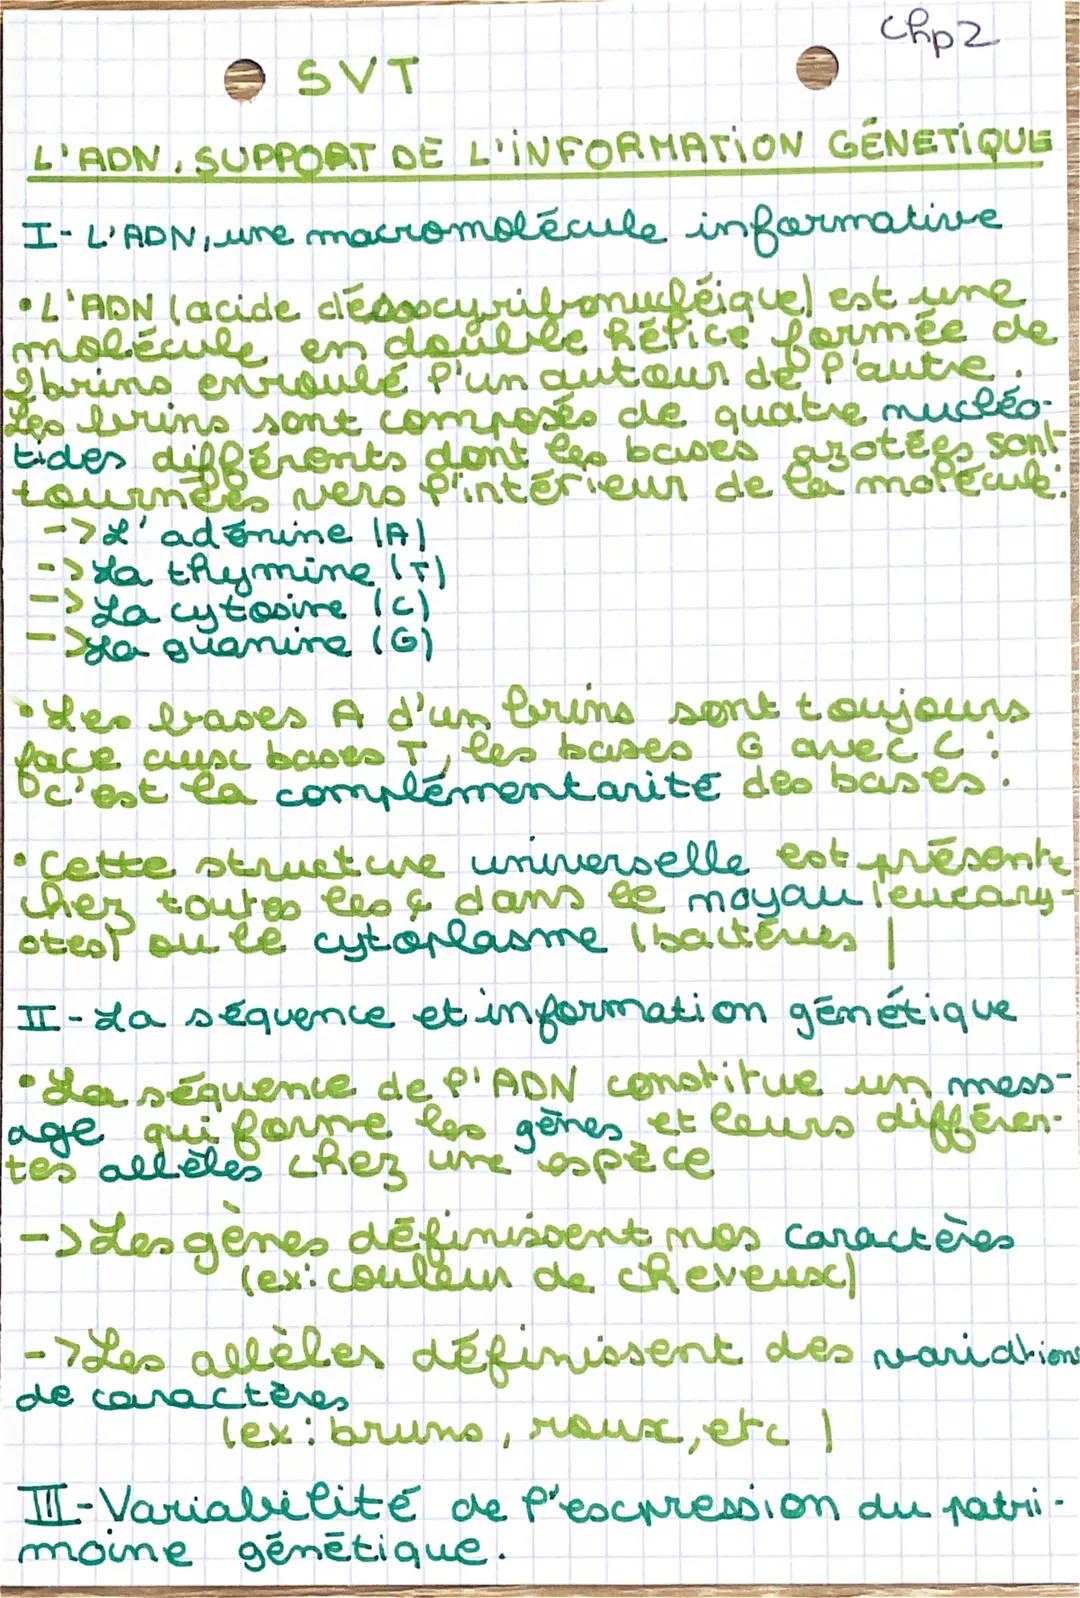 Chp2
SVT
L'ADN, SUPPORT DE L'INFORMATION GÉNETIQUE
I- L'ADN, une macromolécule informative
• L'ADN (acide désoxyribonucléique) est une
molécule en double hélice formée de
2 brins enroulé l'un autour de l'autre.
Les brins sont composés de quatre nucléo-
tides différents dont les bases azotées sont
tournées vers l'intérieur de la molécule:
-> L'adénine (A)
-> La thymine (T)
-> La cytosine (C)
-> La guanine (G)
• Les bases A d'un brins sont toujours
face aux bases T, les bases G avec C :
c'est la complémentarité des bases.
• Cette structure universelle est présente
chez toutes les dans le noyau (eucary-
otes) ou le cytoplasme (bactéries)
II- La séquence et information génétique
• La séquence de l'ADN constitue un mess-
age qui forme les gènes et leurs différen-
tes allèles chez une espèce
-> Les gènes définissent nos caractères
(ex: couleur de cheveux)
-> Les allèles définissent des variations
de caractères
(ex: bruns, roux, etc)
III- Variabilité de l'expression du patri-
moine génétique.